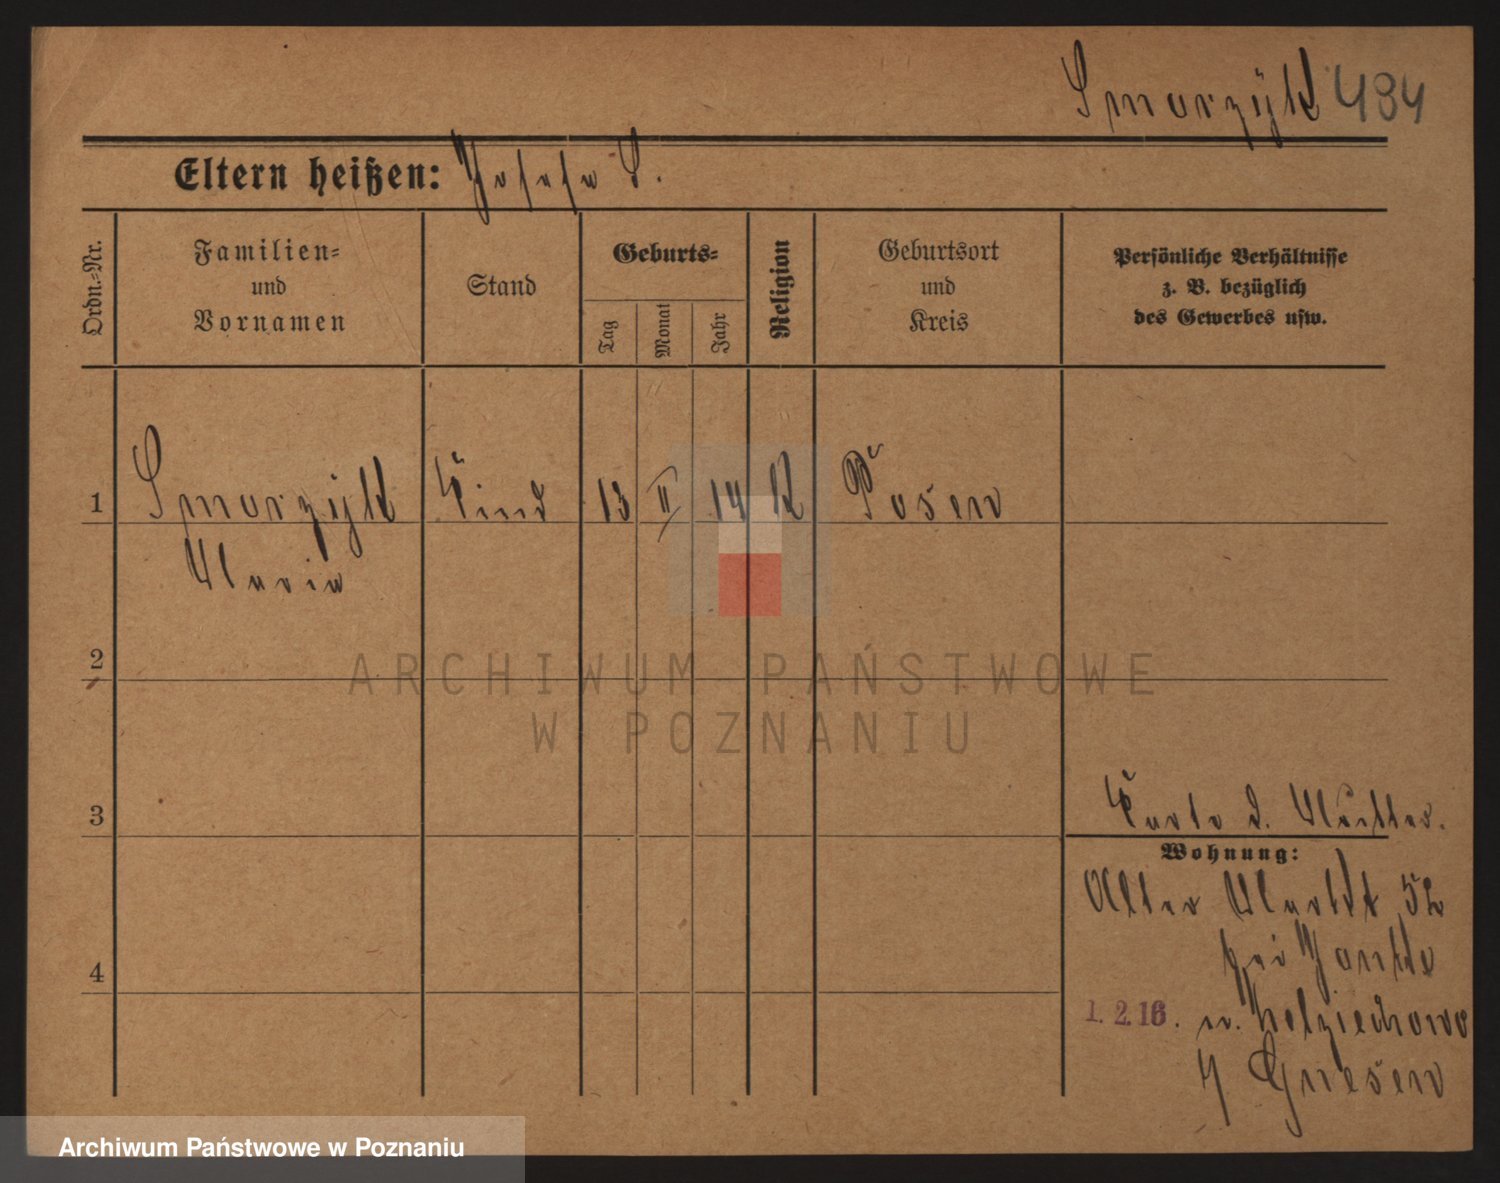 Smorzyk 484
Eltern heißen: Josefa S.
Ordn.-Nr.
Familien-
und
Vornamen
Stand
Geburts-
Tag
Monat
Jahr
Religion
Geburtsort
und
Kreis
Persönliche Verhältnisse
z. B. bezüglich
des Gewerbes usw.
1 Smorzyk Kind 13 II 14 K Posen
Maria
2
ARCHIWUM PAŃSTWOWE
W POZNANIU
3
Karte d. Mutter.
Wohnung:
Alter Markt 52
bei Janke
4
1. 2. 16. n.
Gnesen
Archiwum Państwowe w Poznaniu